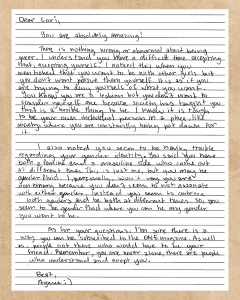 Dear Cori,
You are absolutely amazing!
There is nothing wrong or abnormal about being
queer. I understand you have a difficult time accepting
that, accepting yourself. I noticed this when you
mentioned that you want to be with other girls but
you don't want pursue them yourself. It is as if you
are trying to deny yourself of what you want.
You know you are a lesbian but you don't want to
consider yourself one because society has taught you
that is a terrible thing to be. I know it is tough
to be your own individual person in a place like
society where you are constantly being put down for
it.
I also noted you seem to be having trouble
regarding your gender identity. You said you have
both a feminine and a masculine side who come out
at different times. This is just me, but you may be
gender fluid. I personally wouldn't say you are
nonbinary because you don't seem to not associate
with either gender. Instead you seem to embrace
both genders and be both at different times. So, you
seem to be gender fluid where you can be any gender
you want to be.
As for your questions, I'm sure there is a
why you can be submitted to the magazine. As well
as people out there who would love to be your
friend. Remember, you are never alone, there are people
who understand and accept you.
Best,
:)